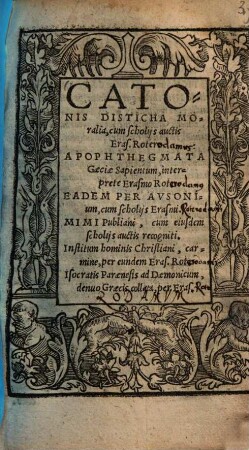 3
CATO-
NIS DISTICHA MO-
ralia, cum scholijs auctis
Eras. Roterodamus
APOPHTHEGMATA
Græciæ Sapientum, inter-
prete Erasmo Roterodamo
EADEM PER AVSONI-
um, cum scholijs Erasmi. Roterodami
MIMI Publiani, cum eiusdem
scholijs auctis recogniti.
Institum hominis Christiani, car-
mine, per eundem Eras. Roterodami
Isocratis Parenesis ad Dæmonicum
denuo Græcis collata, per Eras. Rote